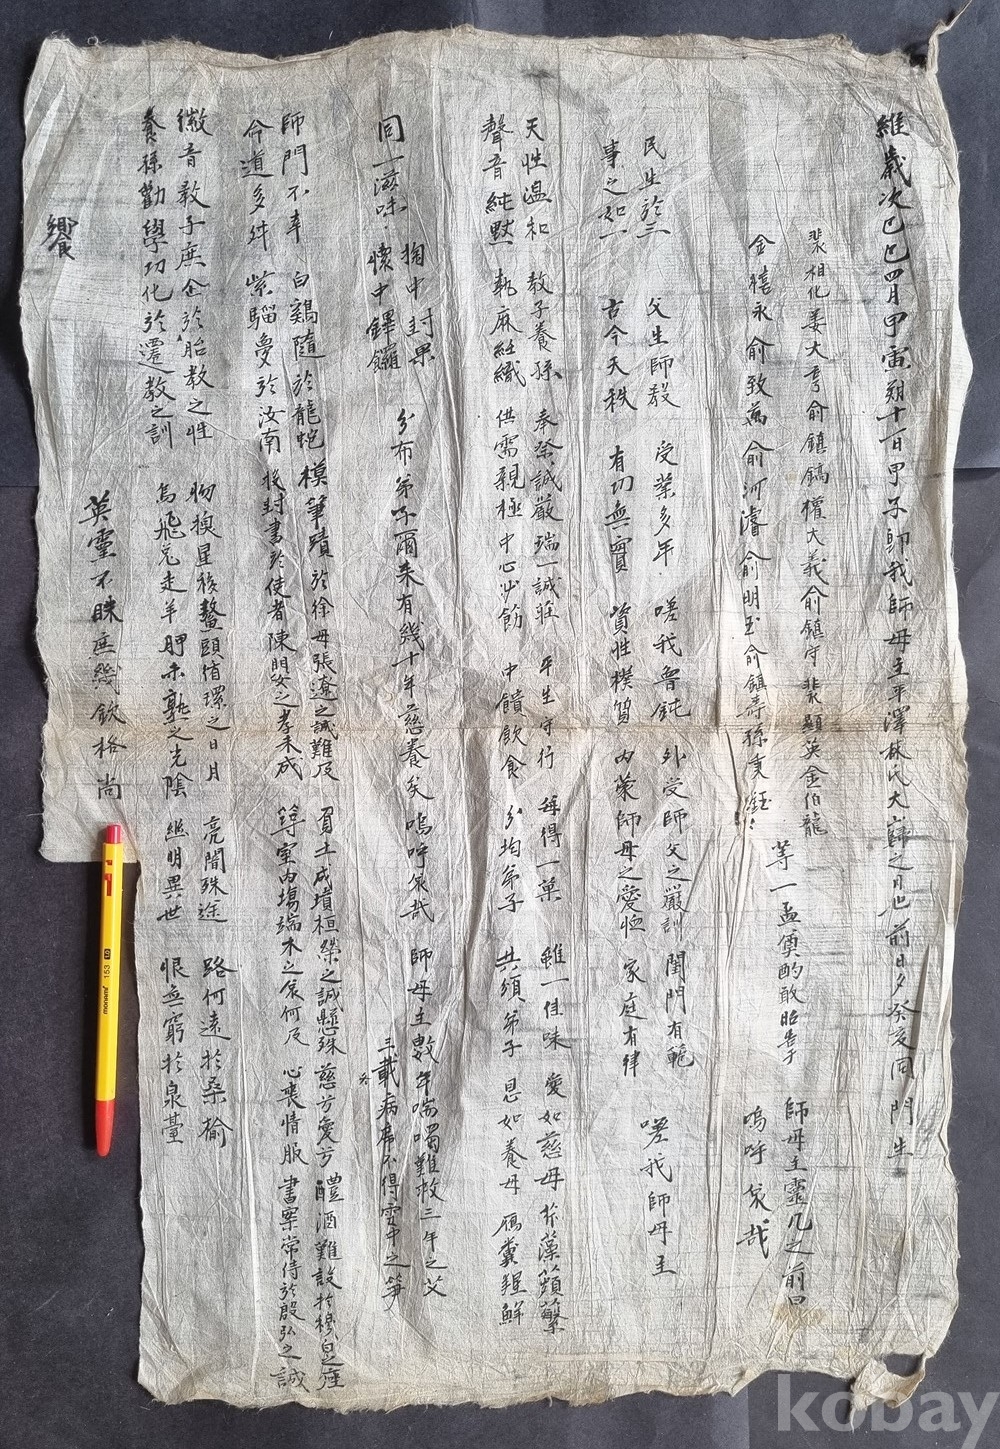 維歲次己巳四月甲寅朔十一日甲子卽我師母主平澤林氏大歸之月也前日夕癸亥同門生
裴相化姜大亨俞鎮鎬權大義俞鎮守裴顯英金伯龍
金禧永俞致萬俞河濬俞明玉俞鎮壽孫秉鈺
等一盃奠酌敢昭告于
師母主靈几之前曰
嗚呼哀哉
民生於三 父生師教 受業多年 嗟我魯鈍 外受師父之嚴訓 閨門有範
事之如一 古今天秩 有切無實 資性樸質 內蒙師母之愛恤 家庭有律
嗟我師母主
天性溫和 教子養孫 奉祭誠嚴瑞一誠莊 平生守行 每得一菓 雖一佳味 愛如慈母 芹藻蘋蘩
聲音純默 執麻紝織 供需親極中心必飭 中饋飲食 分均弟子 共須弟子 恩如養母 鴈糞鯉鮮
同一滋味 掬中封果
懷中鏵鑼
分布弟子爾來有幾十年慈養矣嗚呼哀哉
師母主數年喘噣難救三年之艾
三載病席不得雪中之笋
師門不幸 白鷄隨於龍蛇 模筆蹟於徐母張遼之誠難及 負土成墳桓榮之誠懸殊 慈芳愛方 醴酒難設於穆皀之座
命道多舛 紫騮受於汝南 授封書於使者陳門安之孝未成 鐏室內塲端木之哀何及 心喪情服 書案常侍於殷弘之誠
徽音教子庶企於胎教之性 物換星移鰲頭値環之日月 亮闇殊途 路何遠於桑榆
養孫勸學功化於遷教之訓 烏飛兎走羊胛未熟之光陰 幽明異世 恨無窮於泉臺
英靈不昧庶幾歆格尚
饗
monami 153
kobay